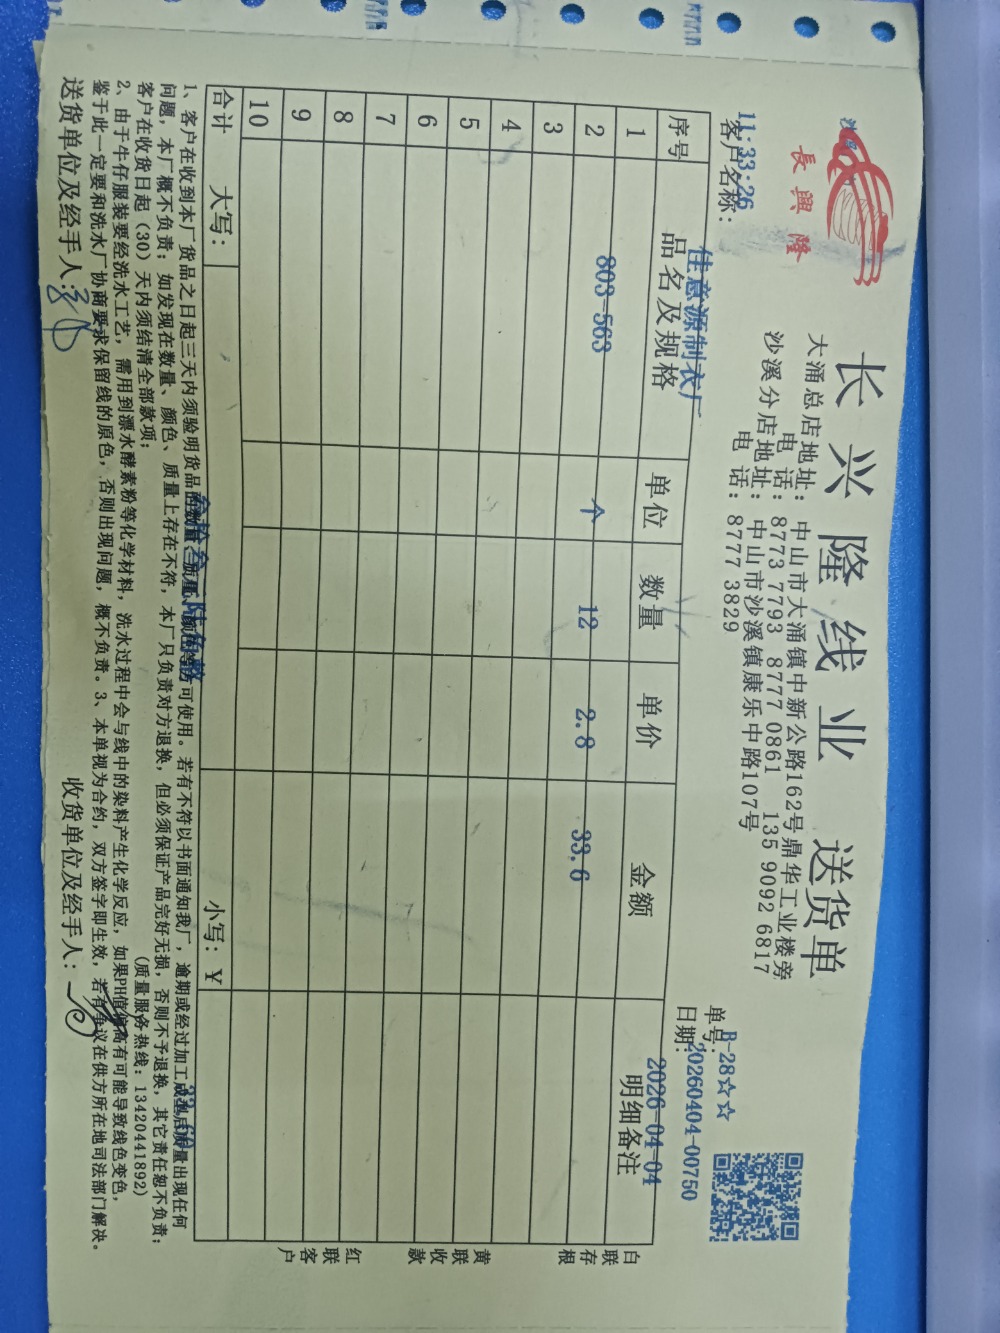 長興隆
长兴隆线业 送货单
大涌总店地址：中山市大涌镇中新公路162号鼎华工业楼旁
电 话：8773 7793 8777 0861 135 9092 6817
沙溪分店地址：中山市沙溪镇康乐中路107号
电 话：8777 3829
B-28☆☆
单号：20260404-00750
日期：2026-04-04
11:33:26
客户名称：佳意源制衣厂
序号 品名及规格 单位 数量 单价 金额 明细备注
1 803-563 个 12 2.8 33.6
2
3
4
5
6
7
8
9
10
合计 大写： 叁拾叁元陆角整 小写：￥
白联存根
黄联收款
红联客户
1、客户在收到本厂货品之日起三天内须验明货品的数量、质量、颜色等方可使用。若有不符以书面通知我厂，逾期或经过加工成型后质量出现任何
问题，本厂概不负责；如发现在数量、颜色、质量上存在不符，本厂只负责对方退换，但必须保证产品完好无损，否则不予退换，其它责任恕不负责；
客户在收货日起（30）天内须结清全部款项； （质量服务热线：13420441892）
2、由于牛仔服装要经洗水工艺，需用到漂水酵素粉等化学材料，洗水过程中会与线中的染料产生化学反应，如果PH值偏高有可能导致线色变色，
鉴于此一定要和洗水厂协商要求保留线的原色，否则出现问题，概不负责。3、本单视为合约，双方签字即生效，若有争议在供方所在地司法部门解决。
送货单位及经手人： 收货单位及经手人：